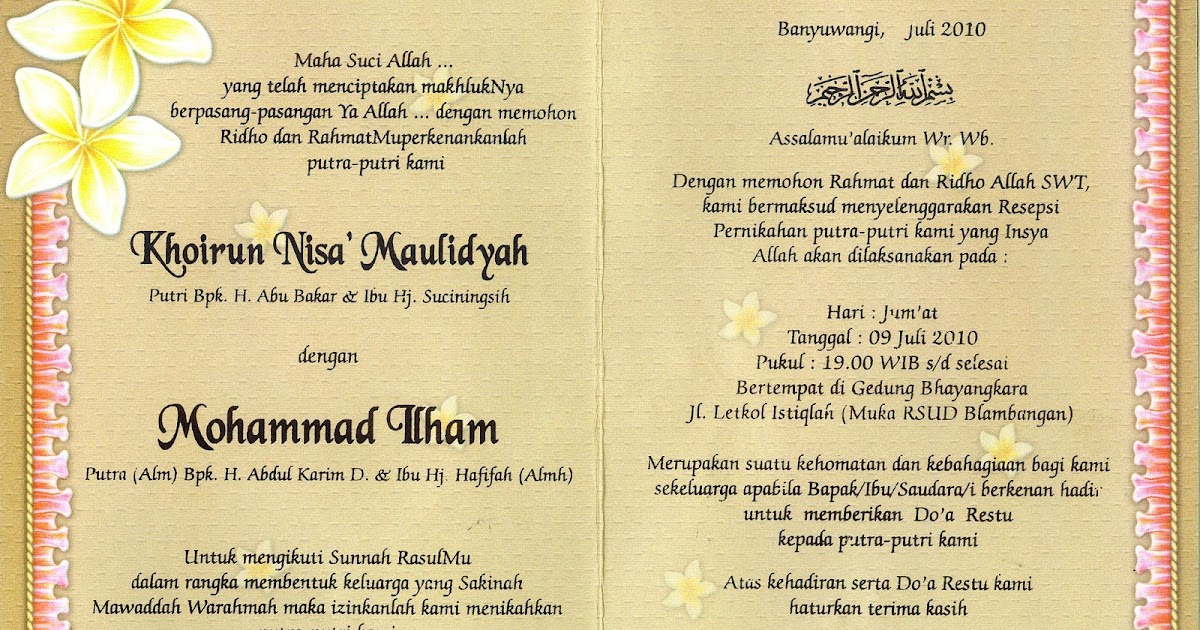 Maha Suci Allah ...
yang telah menciptakan makhlukNya
berpasang-pasangan Ya Allah ... dengan memohon
Ridho dan RahmatMuperkenankanlah
putra-putri kami
Khoirun Nisa' Maulidyah
Putri Bpk. H. Abu Bakar & Ibu Hj. Suciningsih
dengan
Mohammad Ilham
Putra (Alm) Bpk. H. Abdul Karim D. & Ibu Hj. Hafifah (Almh)
Untuk mengikuti Sunnah RasulMu
dalam rangka membentuk keluarga yang Sakinah
Mawaddah Warahmah maka izinkanlah kami menikahkan
putra-putri kami
Banyuwangi, Juli 2010
بسم الله الرحمن الرحيم
Assalamu'alaikum Wr. Wb.
Dengan memohon Rahmat dan Ridho Allah SWT,
kami bermaksud menyelenggarakan Resepsi
Pernikahan putra-putri kami yang Insya
Allah akan dilaksanakan pada :
Hari : Jum'at
Tanggal : 09 Juli 2010
Pukul : 19.00 WIB s/d selesai
Bertempat di Gedung Bhayangkara
Jl. Letkol Istiqlah (Muka RSUD Blambangan)
Merupakan suatu kehomatan dan kebahagiaan bagi kami
sekeluarga apabila Bapak/Ibu/Saudara/i berkenan hadir
untuk memberikan Do'a Restu
kepada putra-putri kami
Atas kehadiran serta Do'a Restu kami
haturkan terima kasih